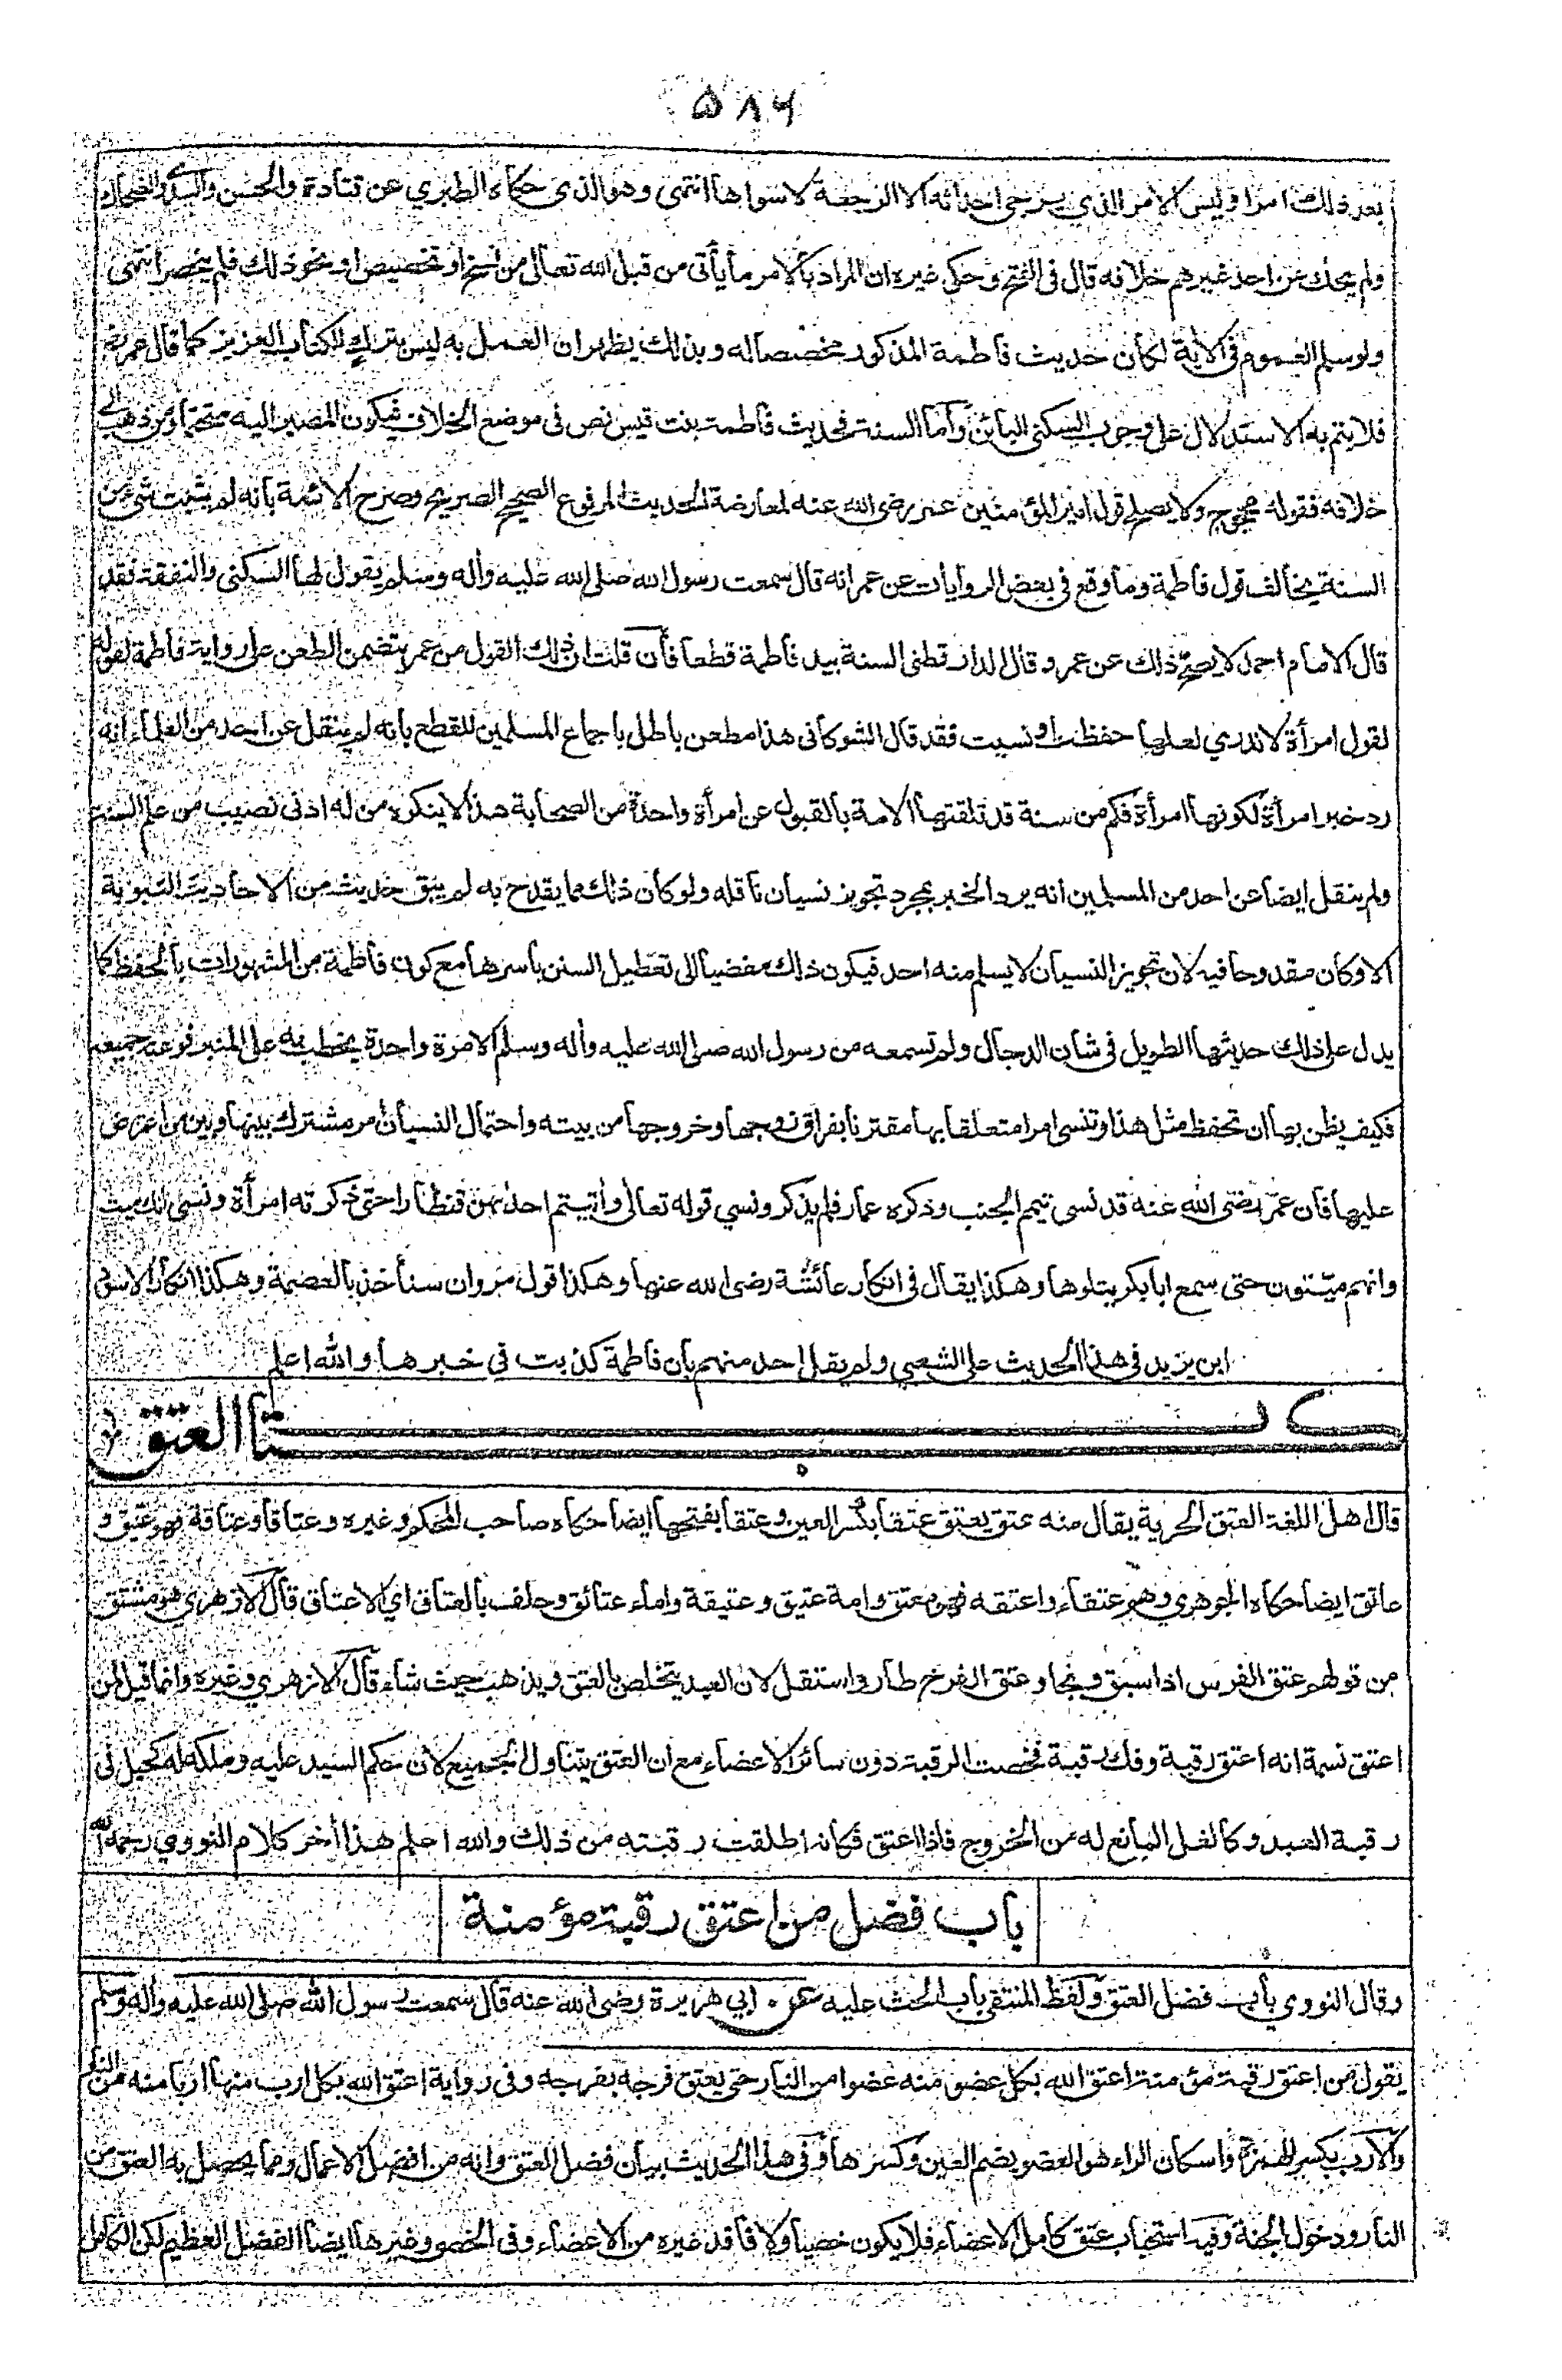 ٥٨٦
بعد ذلك امرا وليس الامر الذي يرجى احداثه الا الرجعة لا سواها انتهى وهو الذي حكاه الطبري عن قتادة والحسن والسدي والضحاك
ولم يحك عن احد غيرهم خلافه قال فى الفتح وحكى غيره ان المراد بالامر ما يأتى من قبل الله تعالى من نسخ او تخصيص او نحو ذلك فلم ينحصر انتهى
ولو سلم العموم فى الاية لكان حديث فاطمة المذكور مخصصا له وبذلك يظهر ان العمل به ليس بترك للكتاب العزيز كما قال عمر
فلا يتم به الاستدلال على وجوب السكنى للبائن واما السنة فحديث فاطمة بنت قيس نص فى موضع الخلاف فيكون المصير اليه متحتما ومن ذهب الى
خلافه فقوله محجوج ولا يصلح قول امير المؤمنين عمر رضى الله عنه لمعارضة الحديث المرفوع الصحيح الصريح وصرح الائمة بانه لم يثبت شئ من
السنة يخالف قول فاطمة وما وقع فى بعض الروايات عن عمر انه قال سمعت رسول الله صلى الله عليه واله وسلم يقول لها السكنى والنفقة فقد
قال الامام احمد لا يصح ذلك عن عمر وقال الدارقطنى السنة بيد فاطمة قطعا فان قلت ان ذلك القول من عمر يتضمن الطعن على رواية فاطمة لقوله
لقول امرأة لا ندري لعلها حفظت او نسيت فقد قال الشوكانى هذا مطعن باطل باجماع المسلمين للقطع بانه لم ينقل عن احد من العلماء انه
رد خبر امرأة لكونها امرأة فكم من سنة قد تلقتها الامة بالقبول عن امرأة واحدة من الصحابة هذا لا ينكره من له ادنى نصيب من علم السنة
ولم ينقل ايضا عن احد من المسلمين انه يرد الخبر بمجرد تجويز نسيان ناقله ولو كان ذلك مما يقدح به لم يبق حديث من الاحاديث النبوية
الا وكان مقدوحا فيه لان تجويز النسيان لا يسلم منه احد فيكون ذلك مفضيا الى تعطيل السنن باسرها مع كون فاطمة من المشهورات بالحفظ كما
يدل على ذلك حديثها الطويل فى شان الدجال ولم تسمعه من رسول الله صلى الله عليه واله وسلم الا مرة واحدة يخطب به على المنبر فوعته جميعه
فكيف يظن بها ان تحفظ مثل هذا وتنسى امرا متعلقا بها مقترنا بفراق زوجها وخروجها من بيته واحتمال النسيان امر مشترك بينها وبين من اعترض
عليها فان عمر رضى الله عنه قد نسى تيمم الجنب وذكره عمار فلم يذكر ونسي قوله تعالى واتيتم احداهن قنطارا حتى ذكرته امرأة ونسى انك ميت
وانهم ميتون حتى سمع ابا بكر يتلوها وهكذا يقال فى انكار عائشة رضى الله عنها وهكذا قول مروان سناخذ بالعصمة وهكذا انكار الاسود
ابن يزيد فى هذا الحديث على الشعبي ولم يقل احد منهم بان فاطمة كذبت فى خبرها والله اعلم
كتاب العتق
قال اهل اللغة العتق الحرية يقال منه عتق يعتق عتقا بكسر العين وعتقا بفتحها ايضا حكاه صاحب المحكم وغيره وعتاقا وعتاقة فهو عتيق و
عاتق ايضا حكاه الجوهري وهم عتقاء واعتقه فهو معتق وامة عتيق وعتيقة واماء عتائق وحلف بالعتاق اي الاعتاق قال الازهري هو مشتق
من قولهم عتق الفرس اذا سبق ونجا وعتق الفرخ طار واستقل لان العبد يتخلص بالعتق ويذهب حيث شاء قال الازهري وغيره وانما قيل لمن
اعتق نسمة انه اعتق رقبة وفك رقبة فخصت الرقبة دون سائر الاعضاء مع ان العتق يتناول الجميع لان حكم السيد عليه وملكه له كحبل فى
رقبة العبد وكالغل المانع له من الخروج فاذا اعتق فكانه اطلقت رقبته من ذلك والله اعلم هذا اخر كلام النووي رحمه الله
باب فضل من اعتق رقبة مؤمنة
وقال النووي باب فضل العتق ولفظ المنتقى باب الحث عليه عن ابي هريرة رضى الله عنه قال سمعت رسول الله صلى الله عليه واله وسلم
يقول من اعتق رقبة مؤمنة اعتق الله بكل عضو منه عضوا من النار حتى يعتق فرجه بفرجه وفى رواية اعتق الله بكل ارب منها اربا منه من النار
والارب بكسر الهمزة واسكان الراء هو العضو بضم العين وكسرها وفى هذا الحديث بيان فضل العتق وانه من افضل الاعمال ومما يحصل به العتق من
النار ودخول الجنة وفيه استحباب عتق كامل الاعضاء فلا يكون خصيا ولا فاقد غيره من الاعضاء وفى الخصى وغيرها ايضا الفضل العظيم لكن الكامل